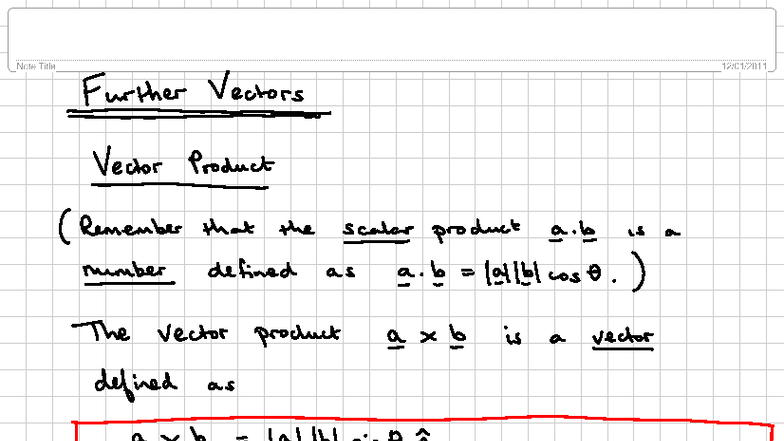 Note Title
12/01/2011
Further Vectors
Vector Product
(Remember that the scalar product a.b is a
number defined as a.b = |a||b| cos θ.)
The vector product a × b is a vector
defined as
a × b = |a||b| sin θ n̂